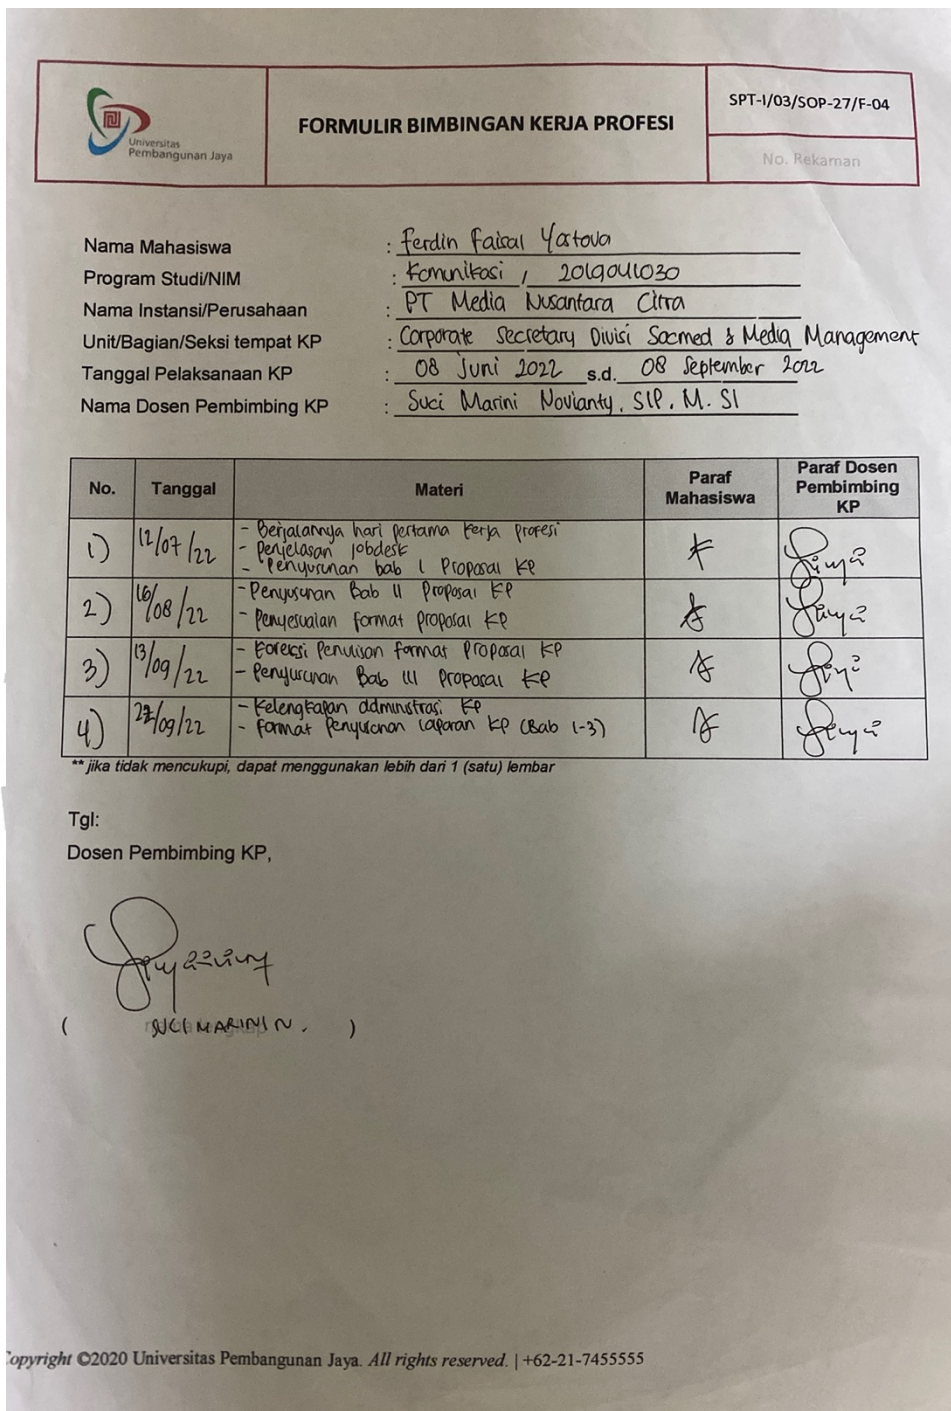 Universitas
Pembangunan Jaya
FORMULIR BIMBINGAN KERJA PROFESI
SPT-I/03/SOP-27/F-04
No. Rekaman
Nama Mahasiswa : Ferdin Faisal Yastova
Program Studi/NIM : Komunikasi / 2019041030
Nama Instansi/Perusahaan : PT Media Nusantara Citra
Unit/Bagian/Seksi tempat KP : Corporate Secretary Divisi Socmed & Media Management
Tanggal Pelaksanaan KP : 08 Juni 2022 s.d. 08 September 2022
Nama Dosen Pembimbing KP : Suci Marini Novianty, SIP, M. SI
No. Tanggal Materi Paraf Mahasiswa Paraf Dosen Pembimbing KP
1) 12/07/22 - Berjalannya hari pertama kerja profesi
- Penjelasan jobdesk
- Penyusunan bab I Proposal KP
2) 16/08/22 - Penyusunan Bab II Proposal KP
- Penyesuaian format proposal KP
3) 13/09/22 - Koreksi Penulisan format Proposal KP
- Penyusunan Bab III Proposal KP
4) /09/22 - Kelengkapan adminstrasi KP
- Format Penyusunan Laporan KP (Bab 1-3)
** jika tidak mencukupi, dapat menggunakan lebih dari 1 (satu) lembar
Tgl:
Dosen Pembimbing KP,
( SUCI MARINI N. )
Copyright ©2020 Universitas Pembangunan Jaya. All rights reserved. | +62-21-7455555